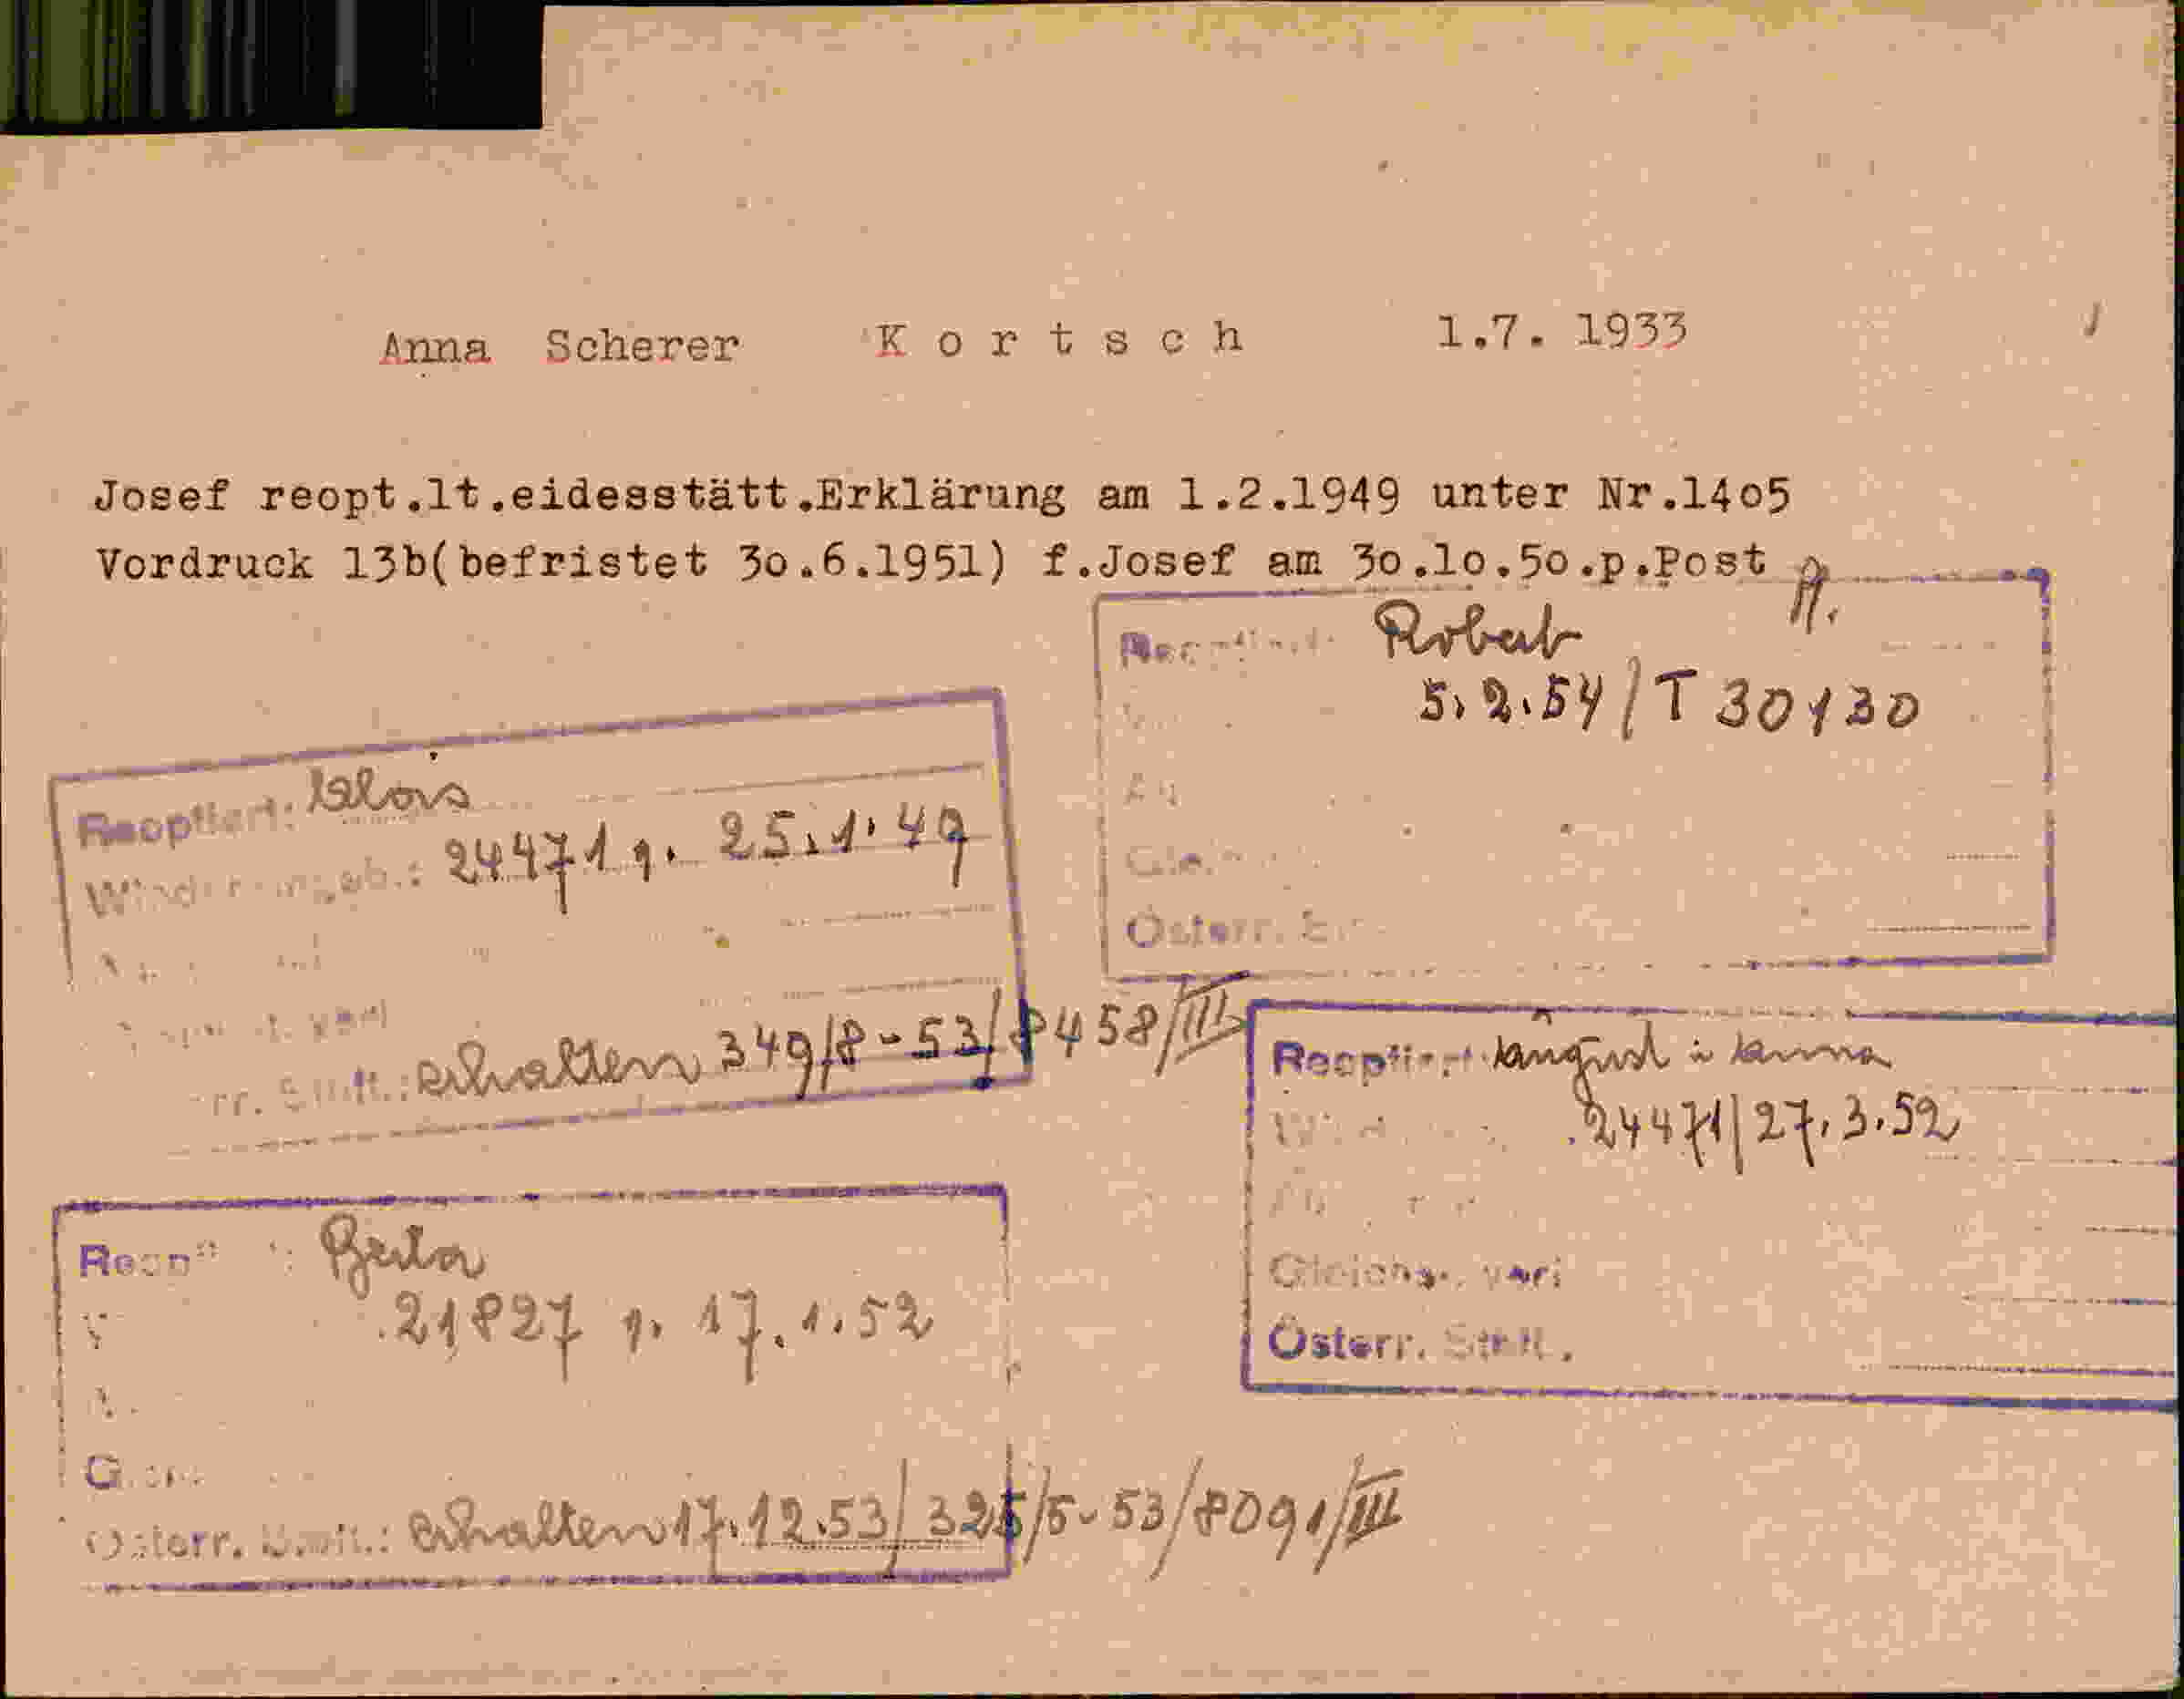 Anna Scherer K o r t s c h 1.7. 1933
Josef reopt.lt.eidesstätt.Erklärung am 1.2.1949 unter Nr.14o5
Vordruck 13b(befristet 3o.6.1951) f.Josef am 3o.lo.5o.p.Post
Robert
5.2.54/T 30130
Österr.
Reoptiert: Alois
24471 v. 25.1.49
erhalten 349/8-53/8458/III
Reoptiert August u Anna
24471/27.3.52
Gleichs. verl
Österr. Stbft.
21827 v. 17.1.52
Österr. erhalten 17.12.53/325/5-53/8091/III